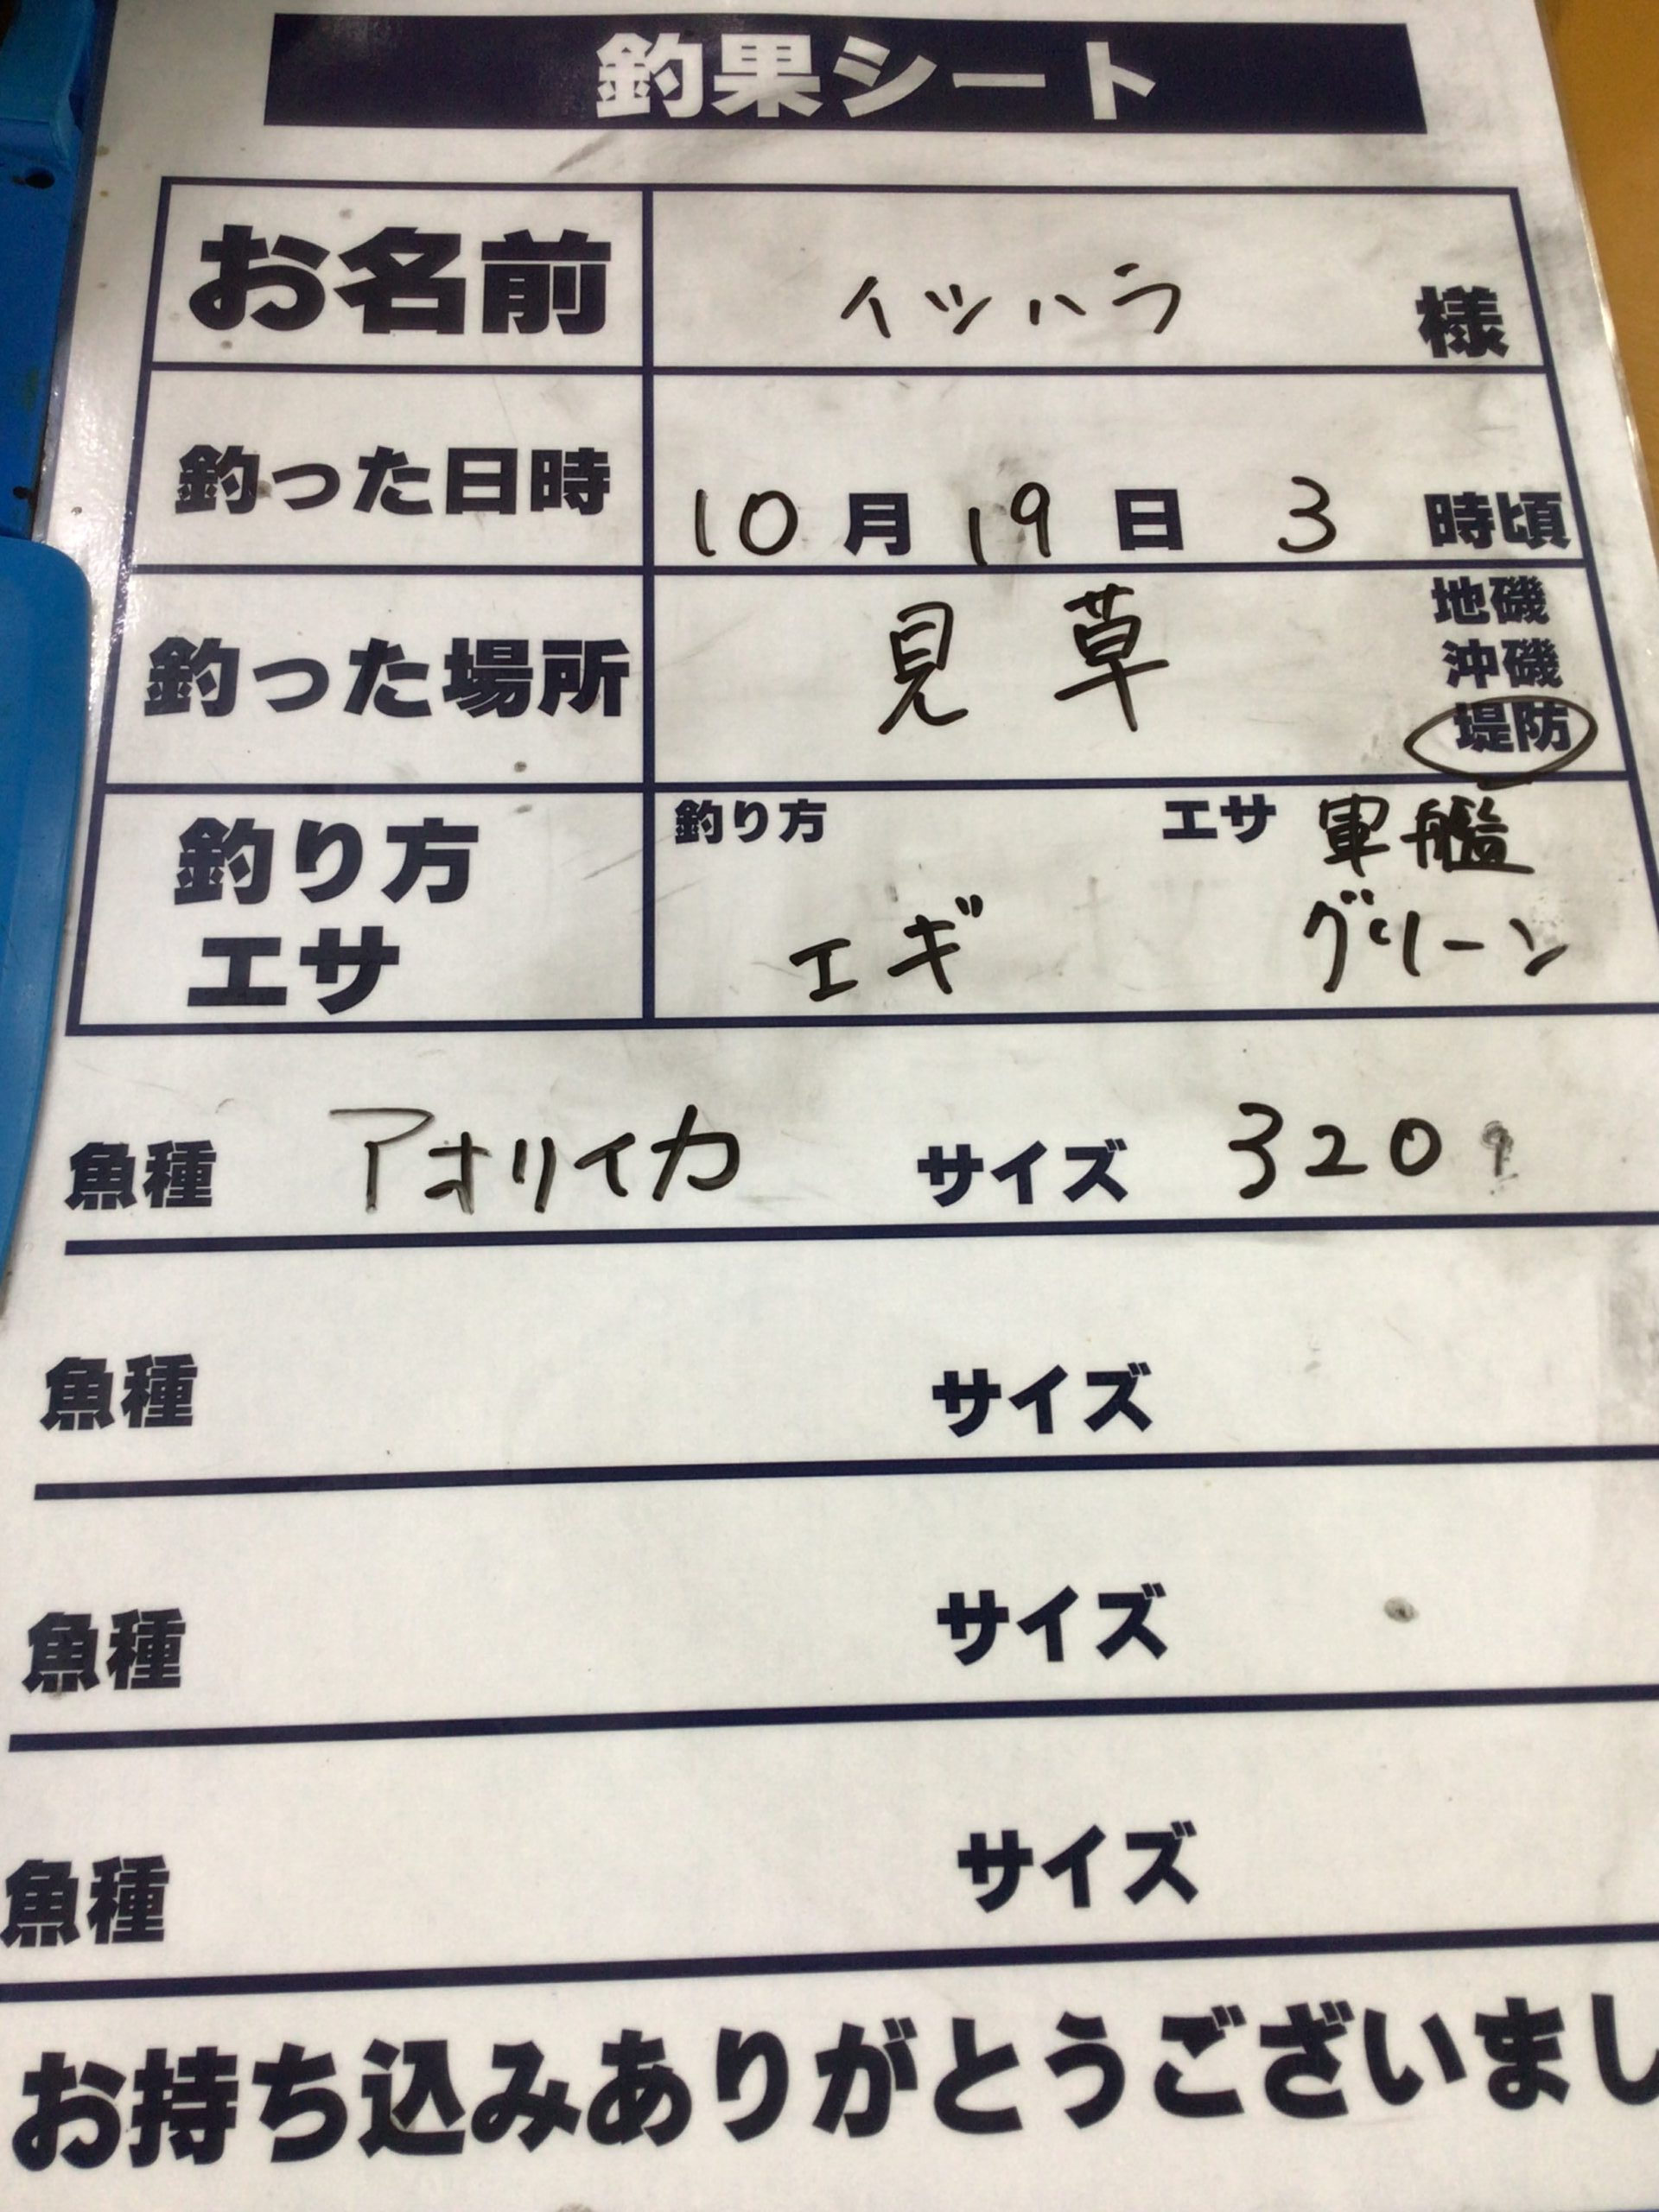 釣果シート
お名前 イツハラ 様
釣った日時 10月19日 3時頃
釣った場所 見草 地磯
沖磯
堤防
釣り方 釣り方 エサ 軍艦
エサ エギ グリーン
魚種 アオリイカ サイズ 320g
魚種 サイズ
魚種 サイズ
魚種 サイズ
お持ち込みありがとうございまし